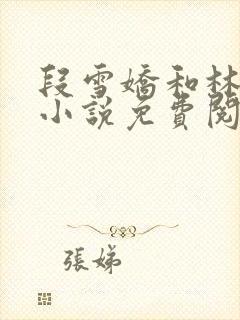 段雪嬌和林
小說免費閱
張娣